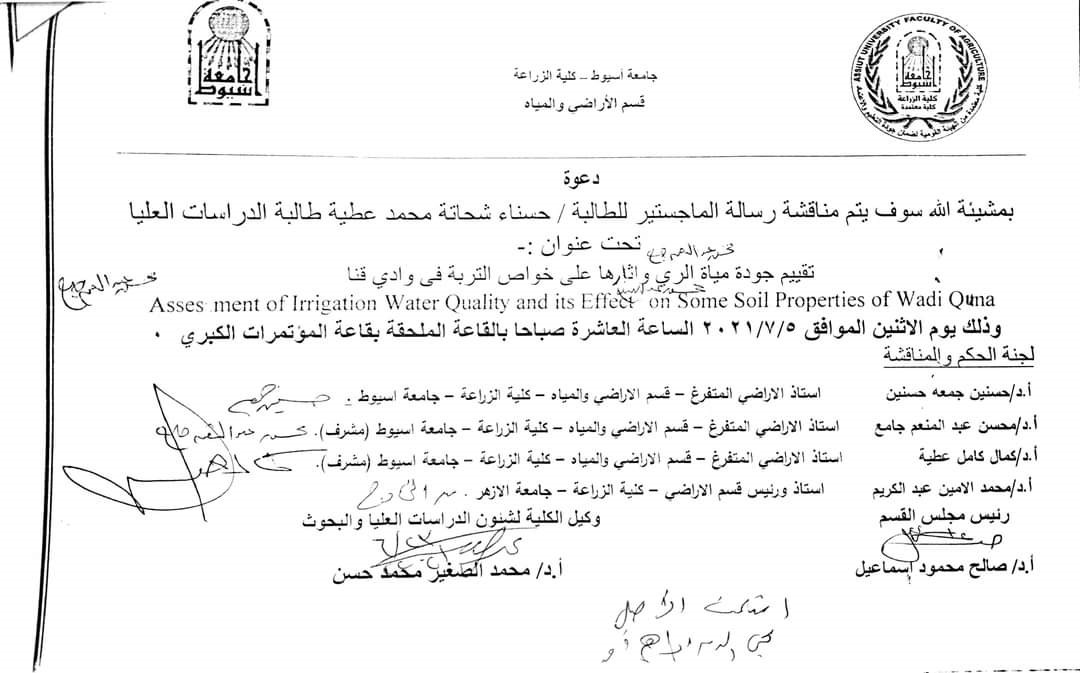 جامعة أسيوط
ASSIUT UNIVERSITY FACULTY OF AGRICULTURE
جامعة أسيوط
كلية الزراعة
كلية معتمدة
جامعة أسيوط – كلية الزراعة
قسم الأراضي والمياه
دعوة
بمشيئة الله سوف يتم مناقشة رسالة الماجستير للطالبة / حسناء شحاتة محمد عطية طالبة الدراسات العليا
تحت عنوان :-
تقييم جودة مياة الري واثارها على خواص التربة فى وادي قنا
Assesment of Irrigation Water Quality and its Effect on Some Soil Properties of Wadi Quna
وذلك يوم الاثنين الموافق ٢٠٢١/٧/٥ الساعة العاشرة صباحا بالقاعة الملحقة بقاعة المؤتمرات الكبري ٠
لجنة الحكم والمناقشة
أ.د/حسنين جمعه حسنين استاذ الاراضي المتفرغ – قسم الاراضي والمياه – كلية الزراعة – جامعة اسيوط .
أ.د/محسن عبد المنعم جامع استاذ الاراضي المتفرغ – قسم الاراضي والمياه – كلية الزراعة – جامعة اسيوط (مشرف).
أ.د/كمال كامل عطية استاذ الاراضي المتفرغ – قسم الاراضي والمياه – كلية الزراعة – جامعة اسيوط (مشرف).
أ.د/محمد الامين عبد الكريم استاذ ورئيس قسم الاراضي – كلية الزراعة – جامعة الازهر .
رئيس مجلس القسم وكيل الكلية لشئون الدراسات العليا والبحوث
أ.د/ صالح محمود إسماعيل أ.د/ محمد الصغير محمد حسن